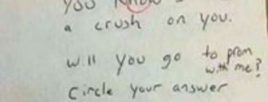 you know
a crush on you.
will you go to prom with me?
Circle your answer